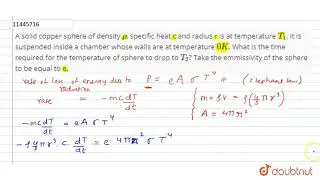 11445716
A solid copper sphere of density ρ, specific heat c and radius r is at temperature T₁. It is
suspended inside a chamber whose walls are at temperature 0K. What is the time
required for the temperature of sphere to drop to T₂? Take the emmisivity of the sphere
to be equal to e.
rate of loss of energy due to radiation P = e A σ T⁴ (Stephen's law)
rate = -mc dT/dt
m = ρV = ρ(4/3 πr³)
A = 4πr²
-mc dT/dt = e A σ T⁴
-ρ 4/3 πr³ · c · dT/dt = e 4πr² σ T⁴
doubtnut